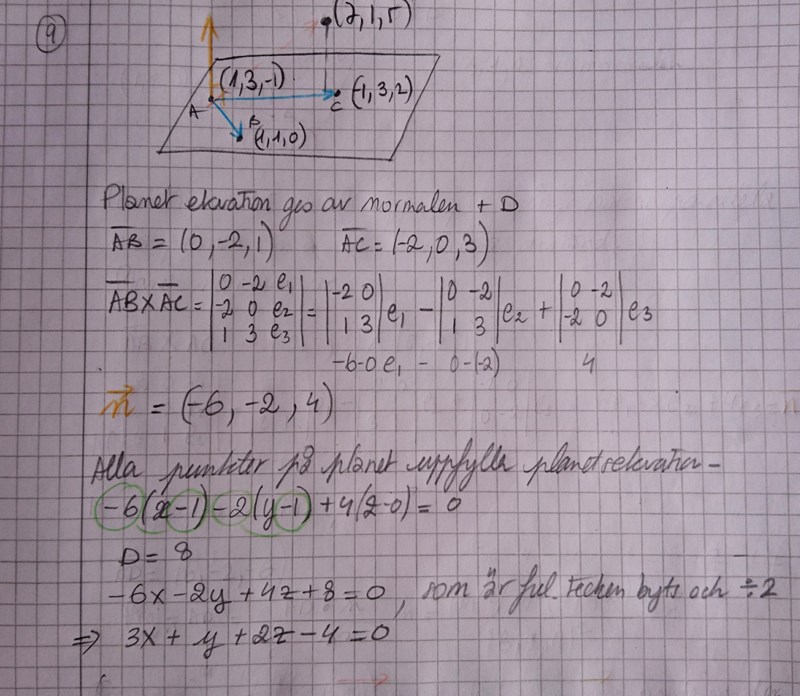 9
(2,1,5)
(1,3,-1)
A
C
(-1,3,2)
B
(1,1,0)
Planet ekvation ges av normalen + D
AB = (0,-2,1) AC = (-2,0,3)
AB×AC = |0 -2 e1; -2 0 e2; 1 3 e3| = |-2 0; 1 3| e1 - |0 -2; 1 3| e2 + |0 -2; -2 0| e3
-6-0 e1 - 0-(-2) 4
n = (-6,-2,4)
Alla punkter på planet uppfylla planetsekvation -
-6(x-1)-2(y-1)+4(z-0) = 0
D = 8
-6x-2y+4z+8=0, som är ful. tecken byts och ÷2
⇒ 3x+y+2z-4=0